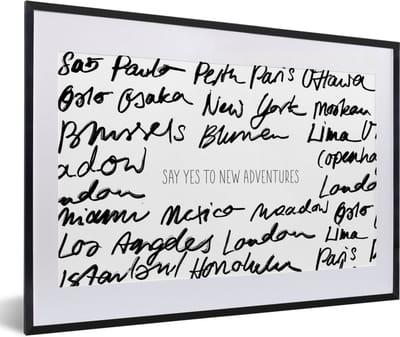 Sao Paulo Perth Paris Ottawa
Oslo Osaka New York Moskau
Brussels Blumen Lima
adow Copenha
SAY YES TO NEW ADVENTURES
ndon Londo
Miami Mexico Meadow Oslo
Los Angeles London Lima
Istanbul Honolulu Paris